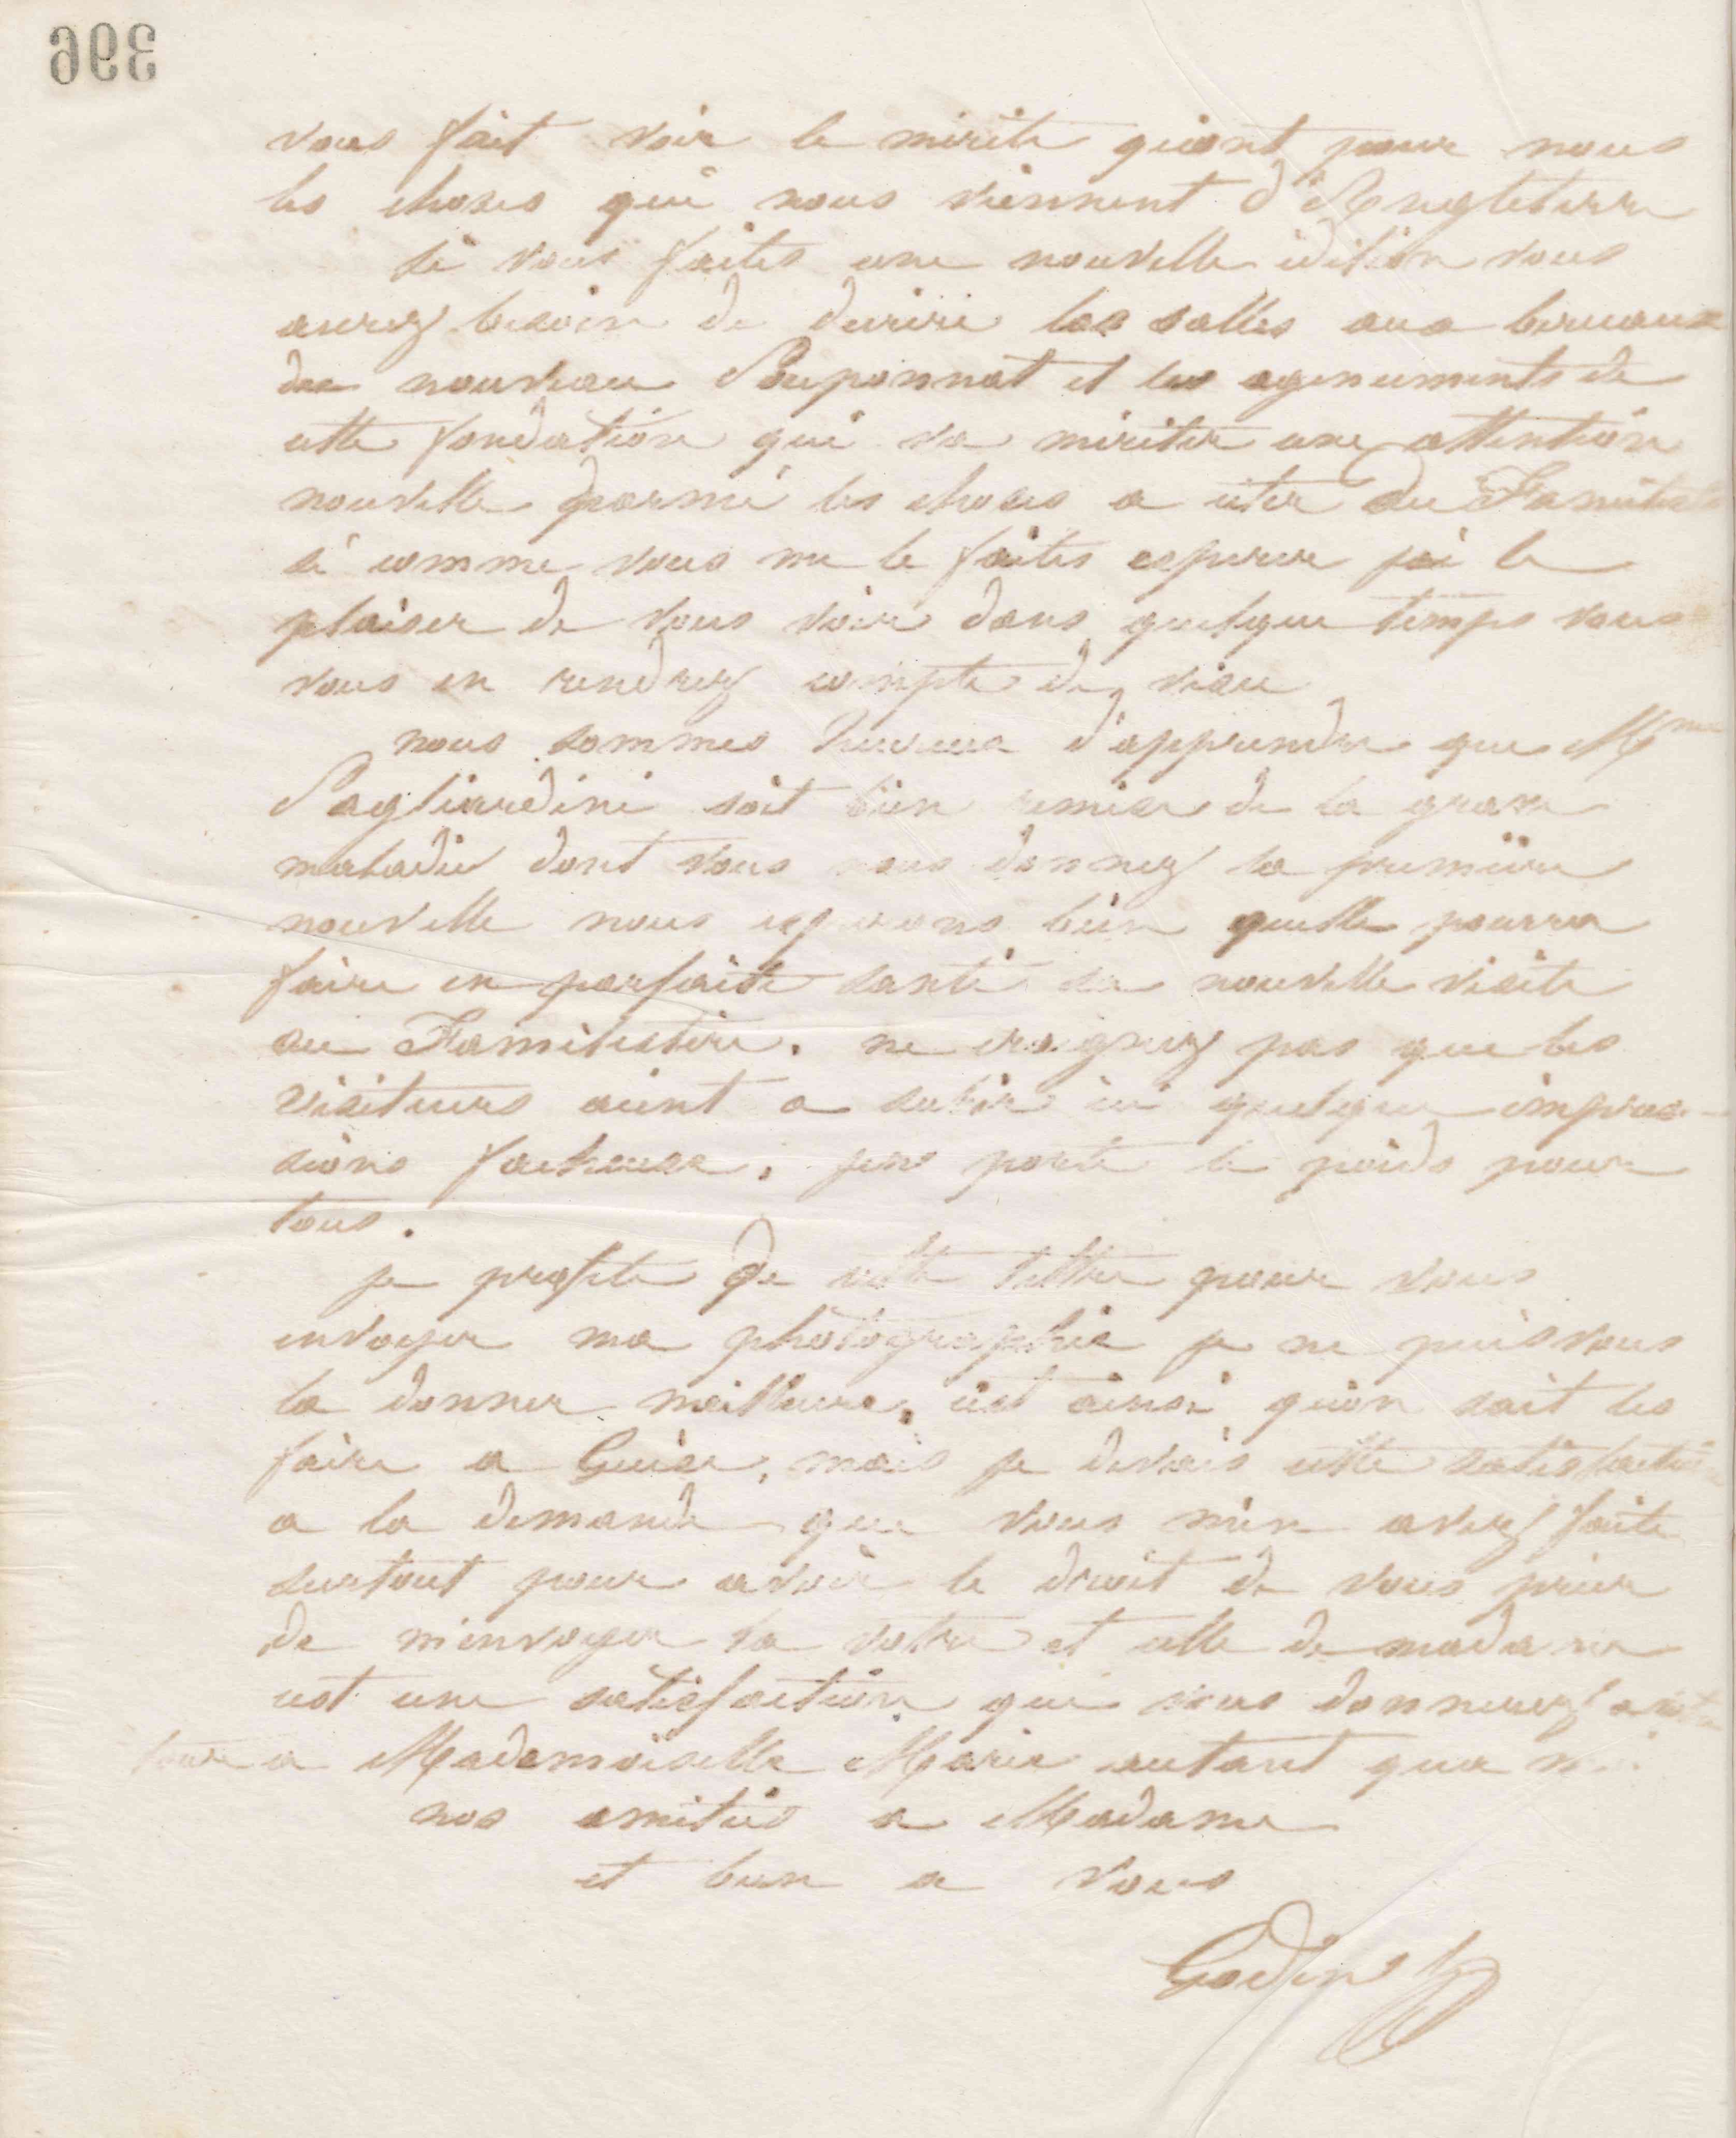 396
vous fait voir le mérite qu'ont pour nous
les choses qui nous viennent d'Angleterre
si vous faites une nouvelle édition vous
aurez besoin de décrire les salles aux berceaux
du nouveau Pouponnat et les agencements de
cette fondation qui va mériter une attention
nouvelle parmi les choses a citer du Familistère
si comme vous me le faites esperer j'ai le
plaisir de vous voir dans quelque temps vous
vous en rendrez compte de visu
nous sommes heureux d'apprendre que Mme
Pagliardini soit bien remise de la grave
maladie dont vous nous donnez la première
nouvelle nous espérons bien quelle pourra
faire en parfaite santé sa nouvelle visite
au Familistère. ne craignez pas que les
visiteurs aient a subir ici quelque impres-
sions facheuse, j'en porte le poids pour
tous.
je profite de cette lettre pour vous
envoyer ma photographie je ne puis vous
la donner meilleure, c'est ainsi qu'on sait les
faire a Guise, mais je devais cette satisfaction
a la demande que vous m'en avez faite
surtout pour avoir le droit de vous prier
de m'envoyer la votre et celle de madame
cest une satisfaction que vous donnerez
a Mademoiselle Marie autant qua moi
nos amitiés a Madame
et bien a vous
Godin